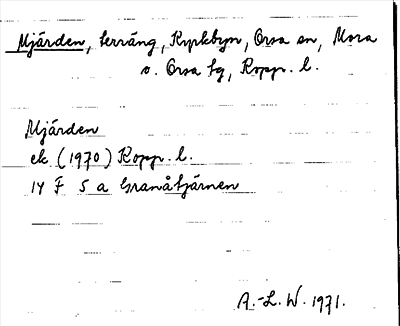 Mjärden, terräng, Kyrkbyn, Orsa sn, Mora
o. Orsa tg, Kopp. l.
Mjärden
ek (1970) Kopp. l.
14 F 5 a Granåtjärnen
A.-L. W. 1971.